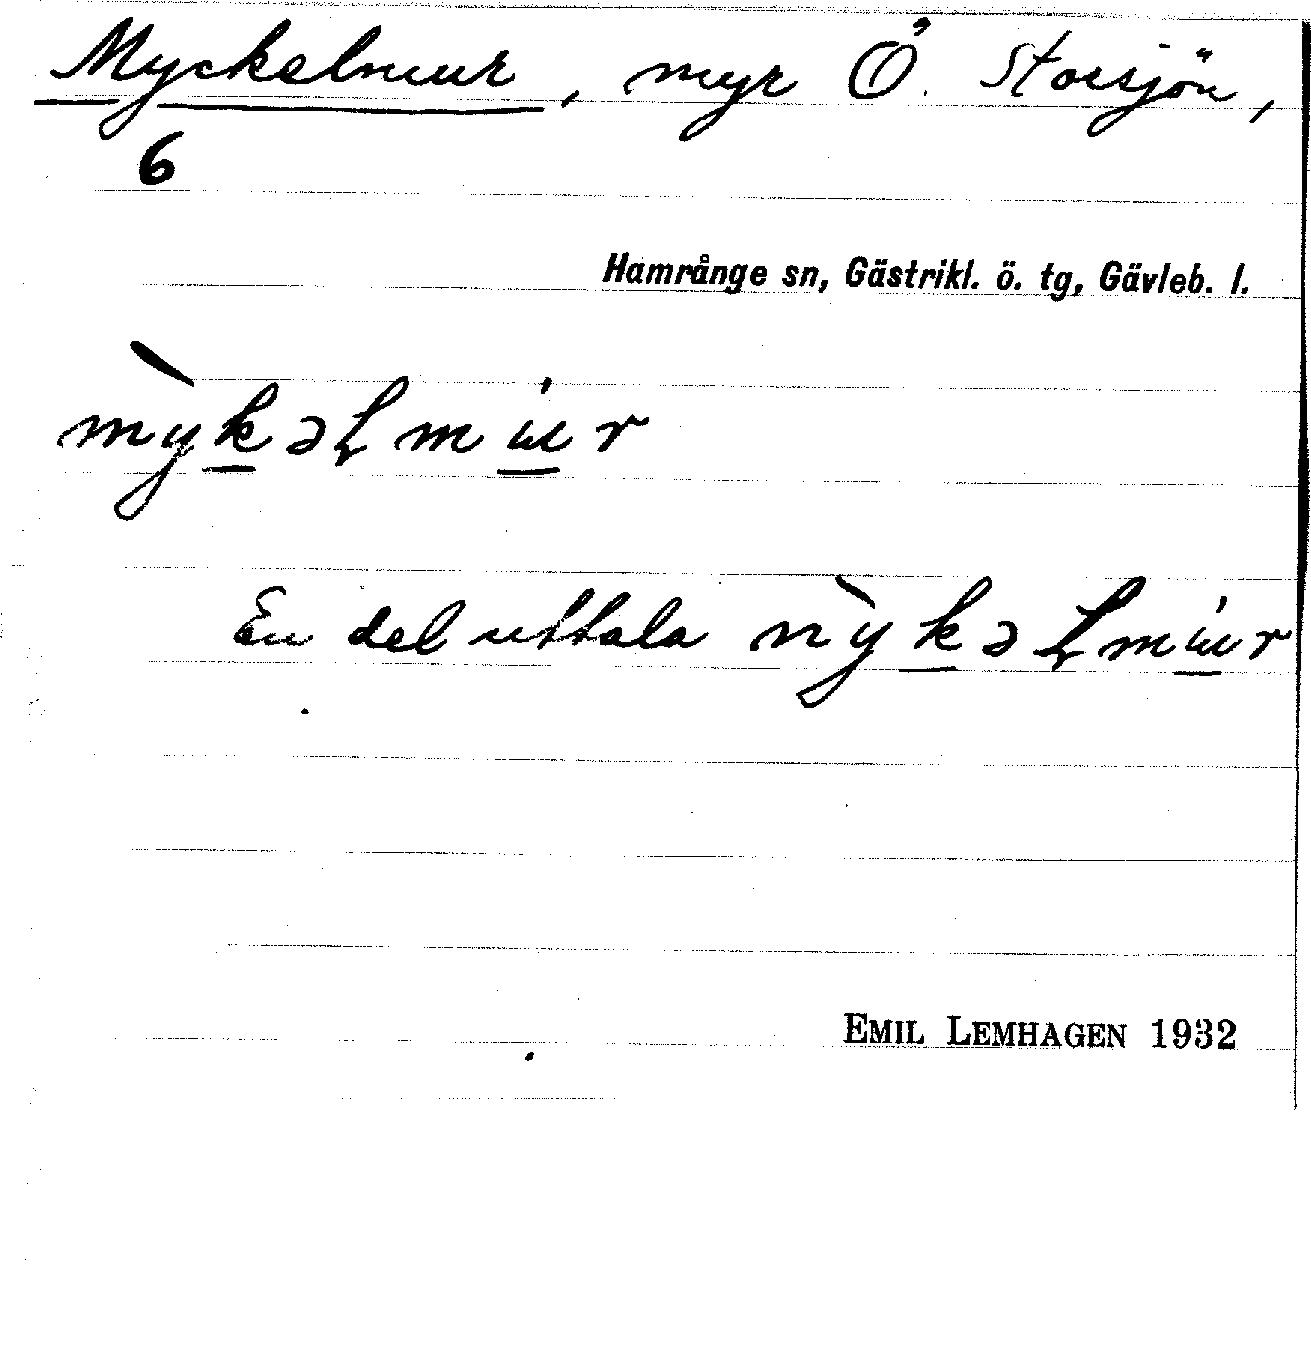 Myckelmur, myr Ö. Storsjön,
6
Hamrånge sn, Gästrikl. ö. tg, Gävleb. l.
mỳkəɭmúr
En del uttala nỳkəɭmúr
EMIL LEMHAGEN 1932